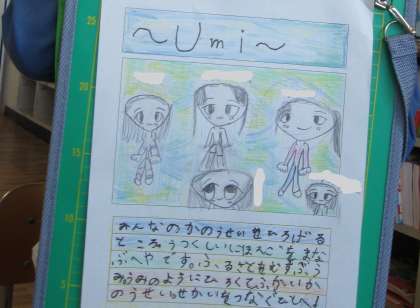 ～Umi～
みんなのかのうせい
ところ うつくしいにほんごをまな
ぶへやです。ふるさとをむすぶう
みうみのようにひろくてふかいか
のうせい せかいをつなぐ
25
20
15
10
5